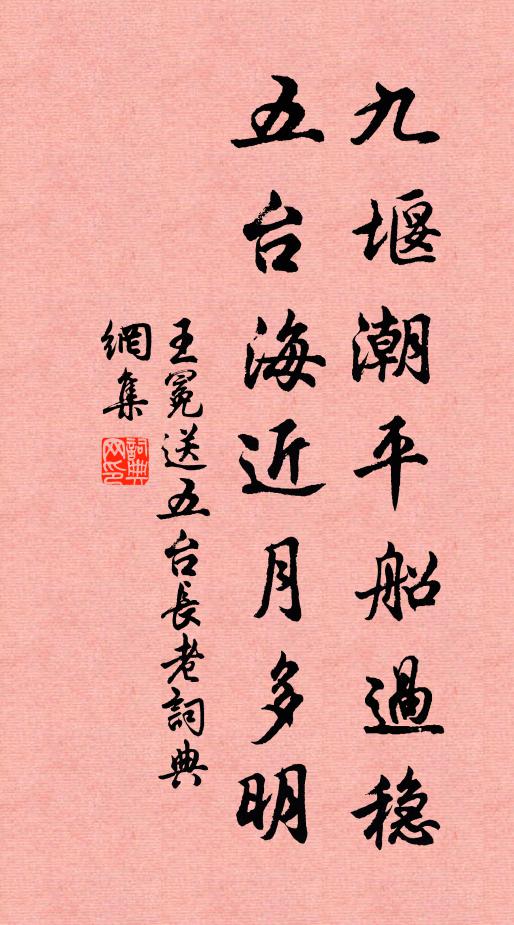 九堰潮平船過穩
五台海近月多明
王冕送五台長老詞典
網集
詞典網印